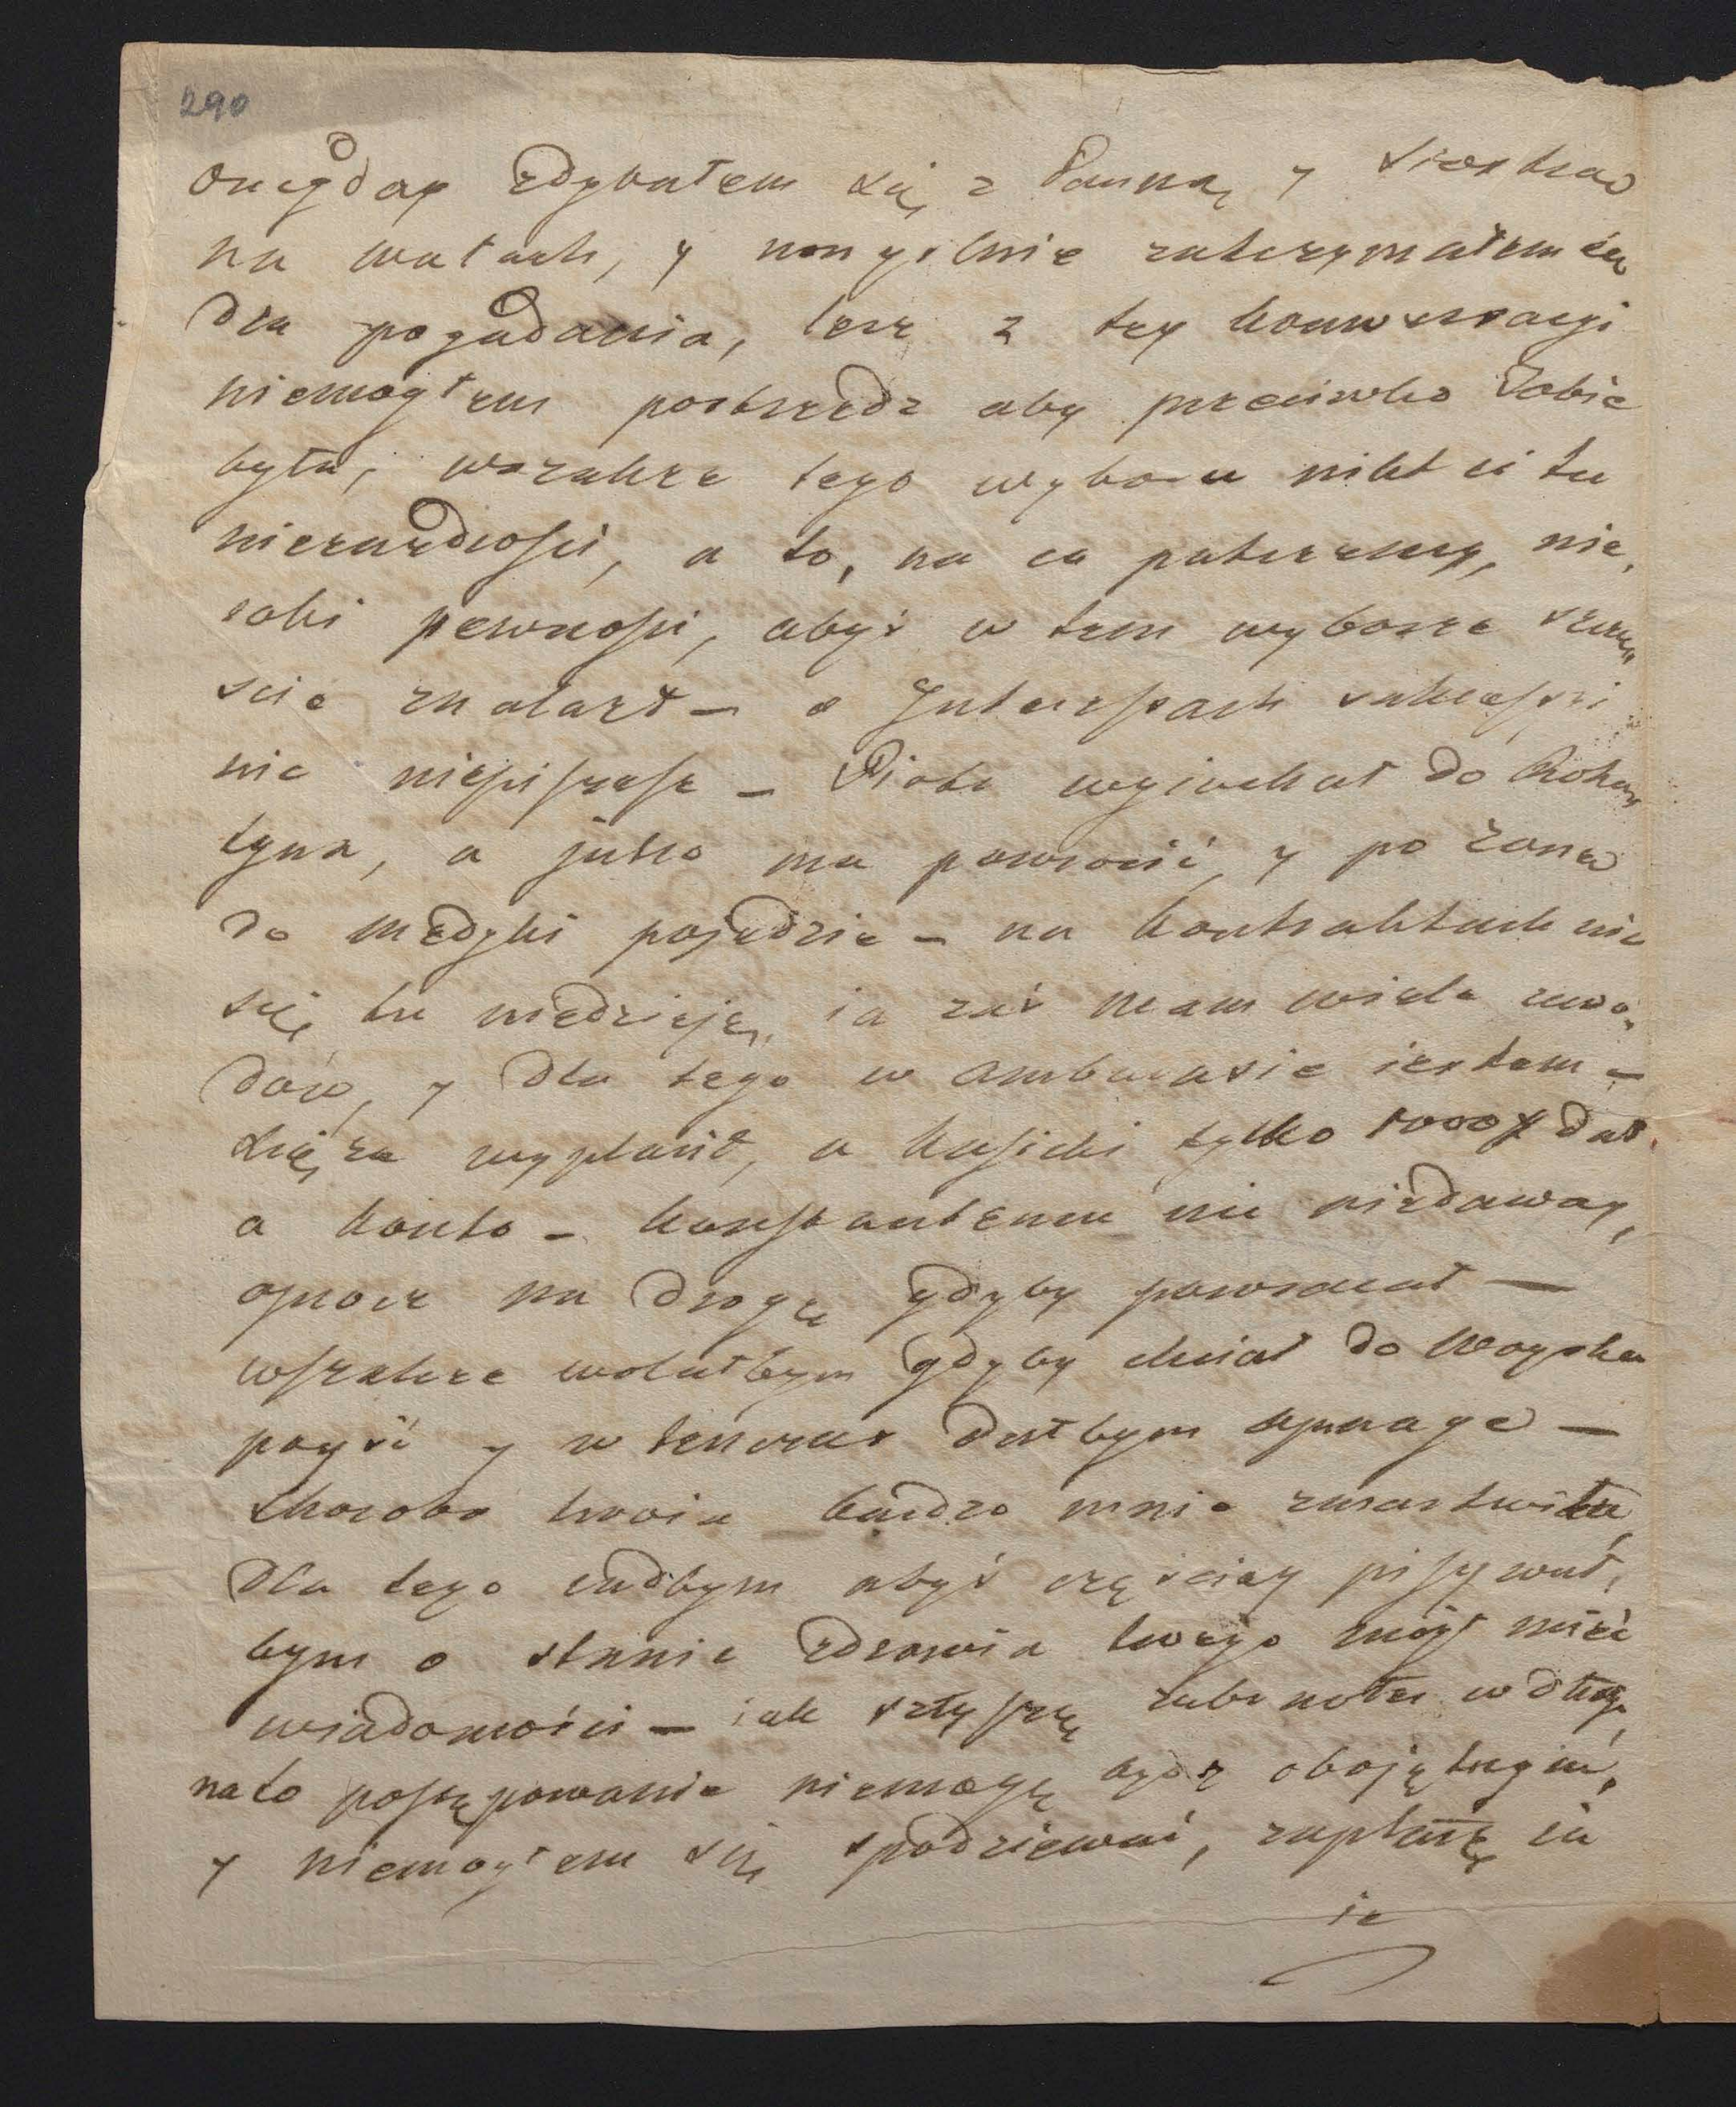 290
onegday zdybałem się z Panną y siostrą
na wałach, y umyslnie zatrzymałem ią
dla pogadania, lecz z tey konwersacyi
niemogłem postrzedz aby przeciwko Tobie
była, wszakże tego wyboru nikt ci tu
niezazdrości, a to, na co patrzemy, nie,
robi pewności, abyś w tem wyborze szczę
scie znalazł – o Interessach sukcessyi
nic niepiszesz – Piotr wyjechał do Roha,
tyna, a jutro ma powrocić, y po żonę
do Medyki pojedzie – na kontraktach nic
się tu niedzieje, ia zaś mam wiele zawo,
dów, y dla tego w ambarasie iestem –
Xięża wypłacił, a Kasicki tylko 1000 # dał
a konto – Konstantemu nic niedaway,
oprocz na drogę gdyby powracał —
wszakże wolałbym gdyby chciał do Woyska
poyść y w tenczas dałbym apanage —
Choroba twoia bardzo mnie zmartwiła
dla tego radbym abyś częsciey pisywał,
bym o stanie zdrowia twego mógł mieć
wiadomości – iak słyszę w długi,
na to postępowanie niemogę bydz obojętnym,
y niemogłem się spodziewać, zapłacę ia
ie